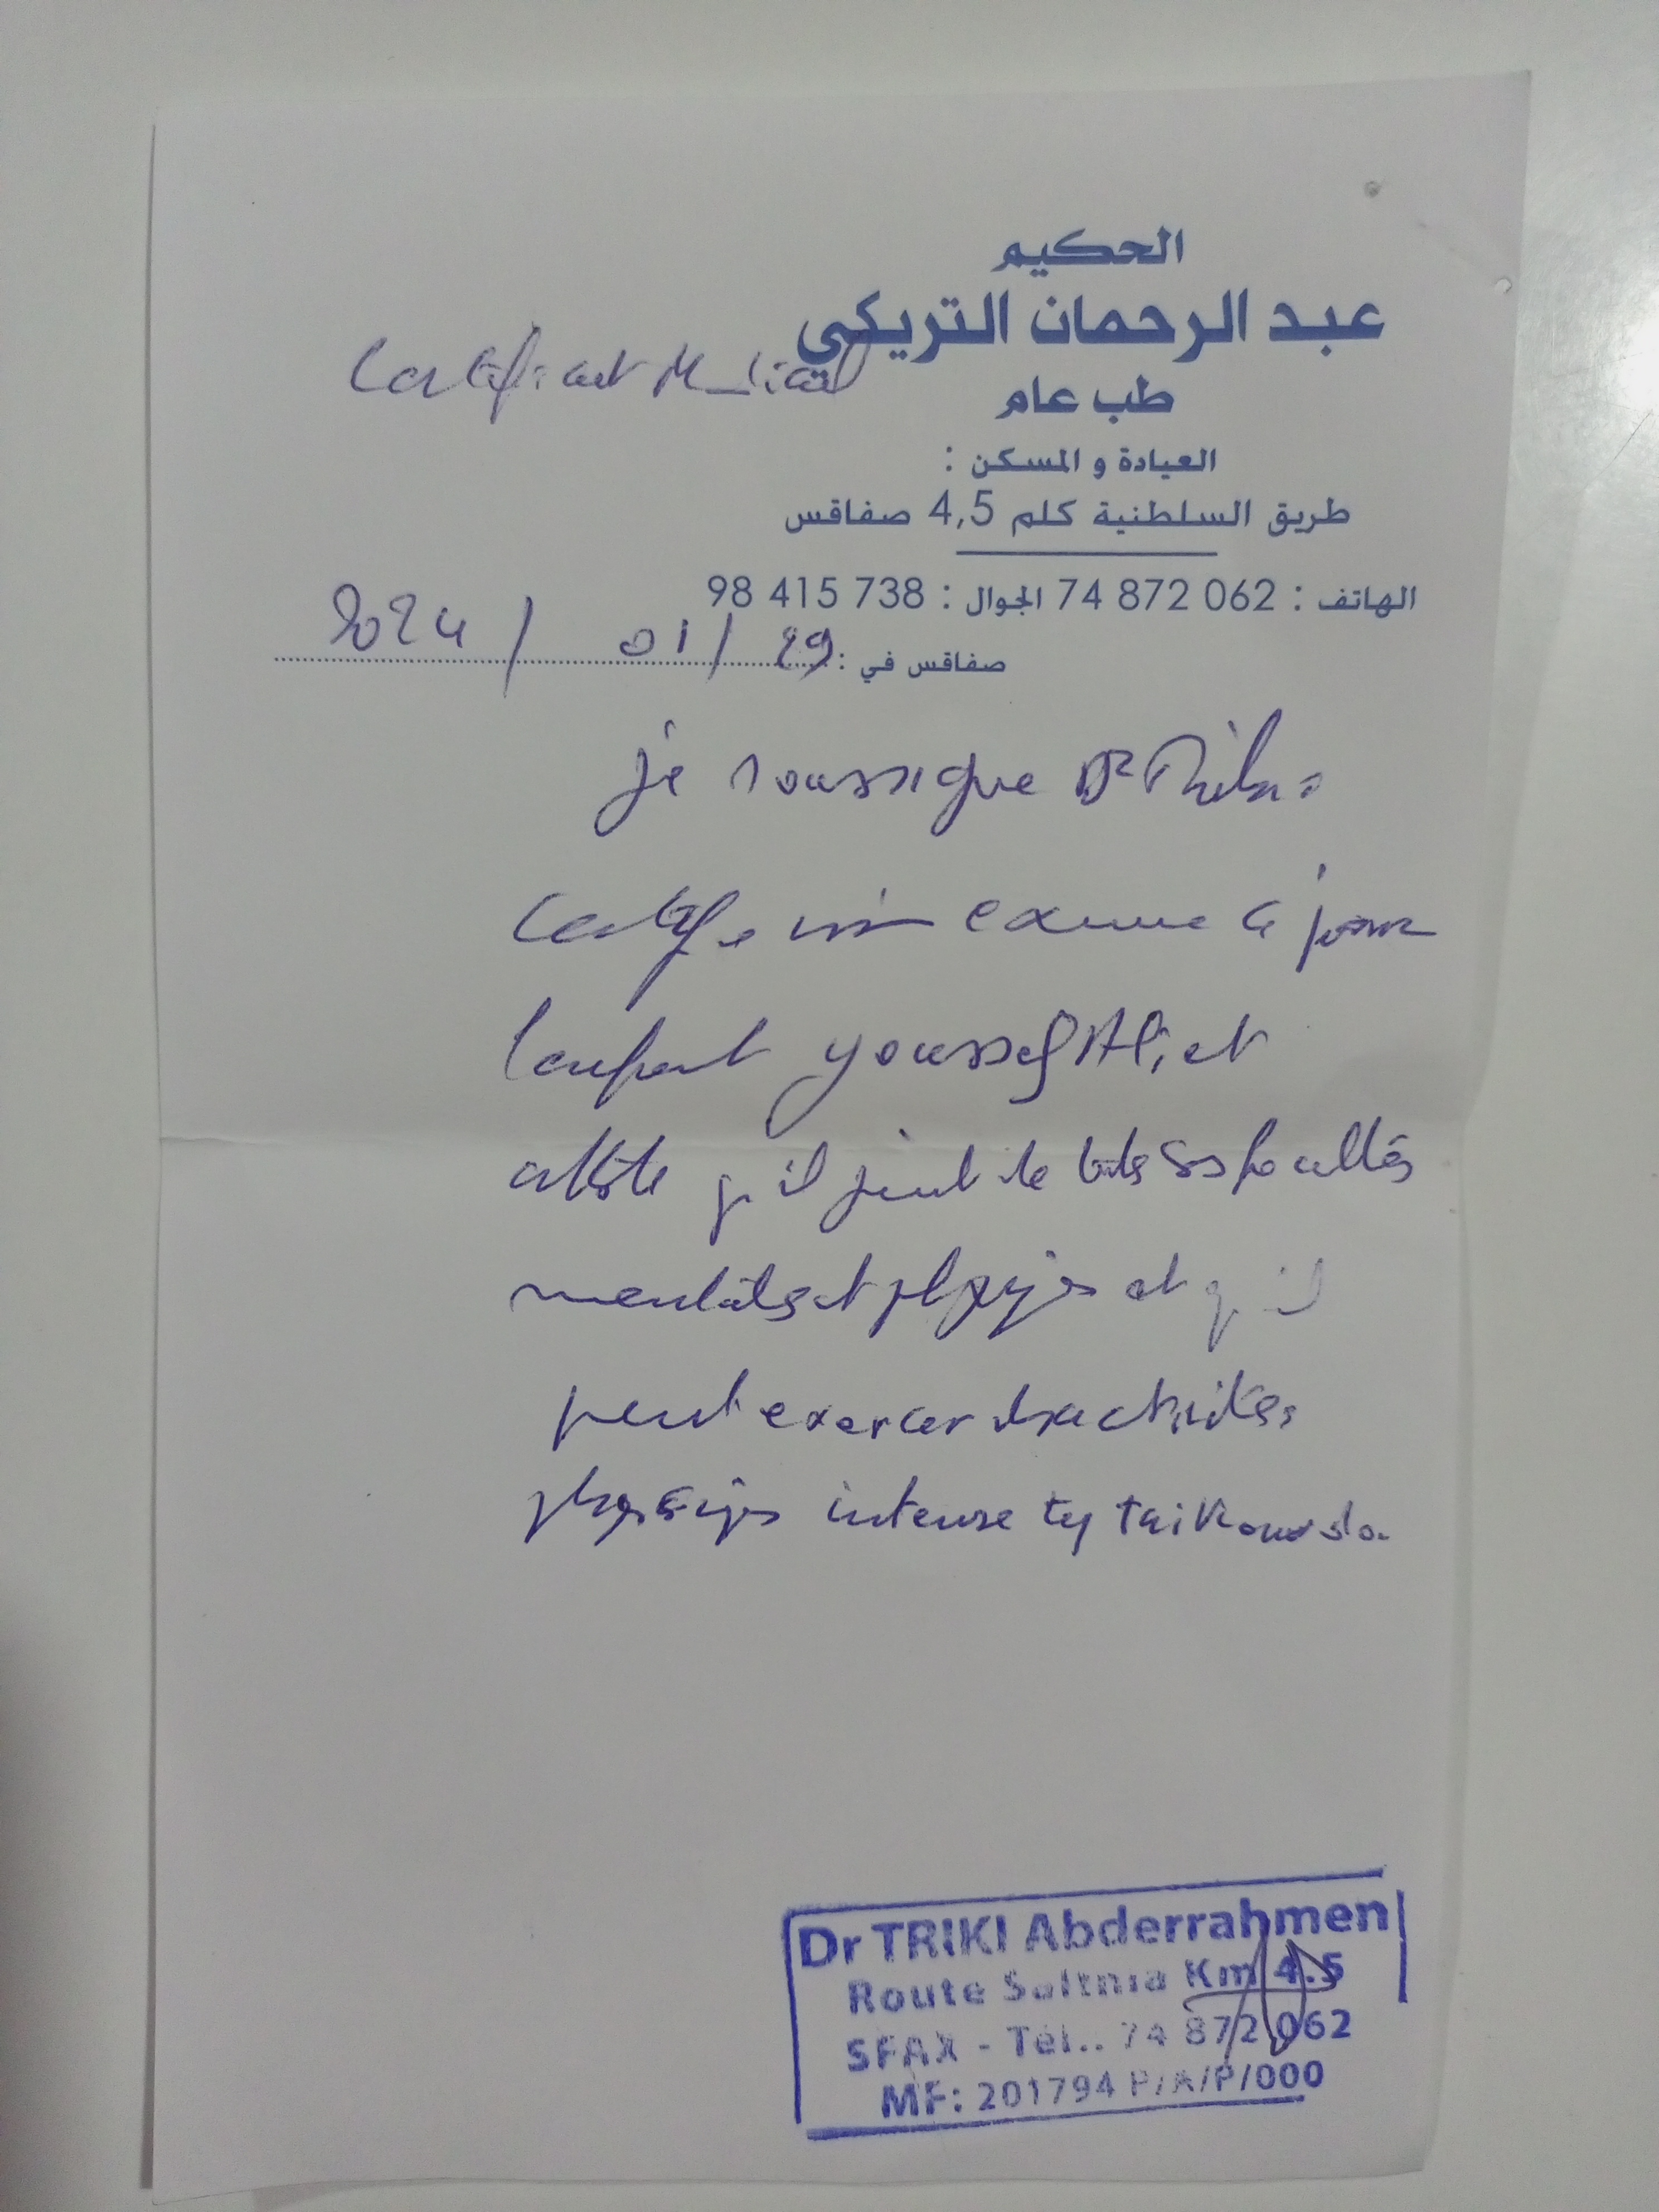 الحكيم
عبد الرحمان التريكي
Certificat Médical
طب عام
العيادة و المسكن :
طريق السلطنية كلم 4,5 صفاقس
الهاتف : 74 872 062 الجوال : 98 415 738
صفاقس في : 29 / 01 / 2024
je soussigne Dr Triki
Certifie avoir examine ce jour
l'enfant youssef Ali et
atteste qu'il jouit de toutes ses facultés
mentales et physiques et qu'il
peut exercer des activités
physiques intense tq taikowndo
Dr TRIKI Abderrahmen
Route Soltnia Km 4.5
SFAX - Tél.. 74 872 062
MF: 201794 P/A/P/000